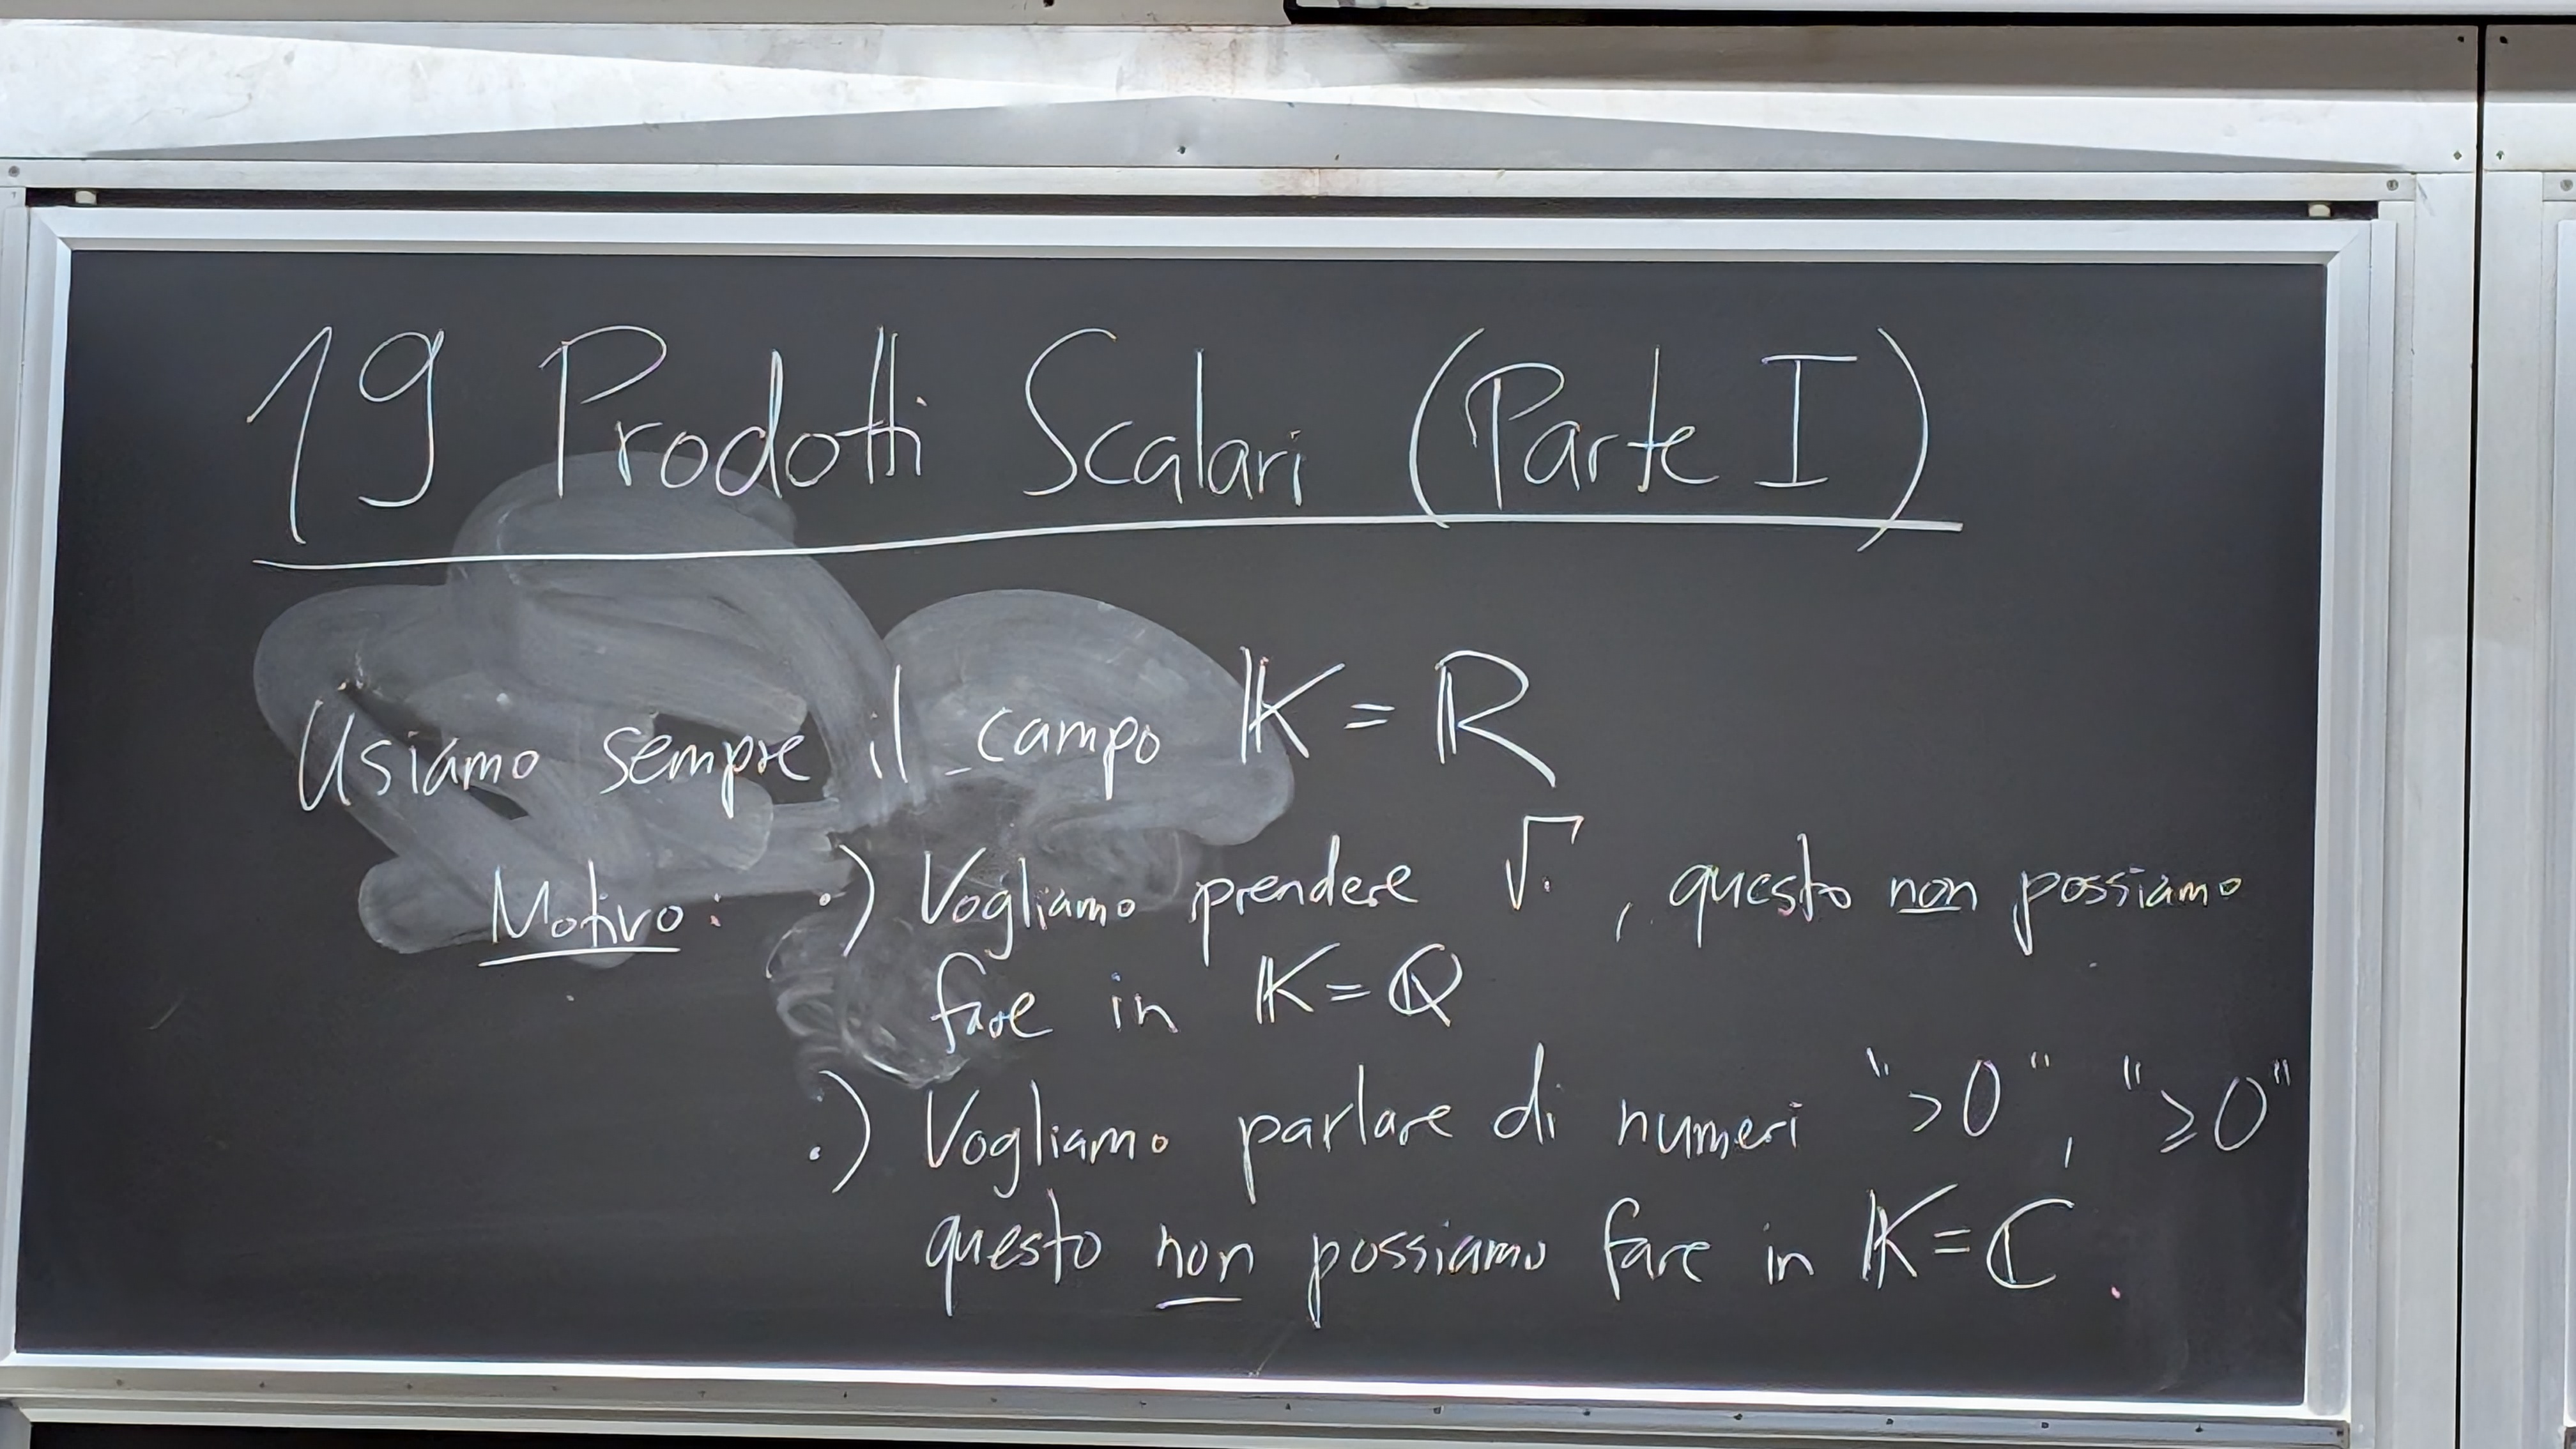 19 Prodotti Scalari (Parte I)
Usiamo sempre il campo 𝕂 = ℝ
Motivo: ·) Vogliamo prendere √· , questo non possiamo
fare in 𝕂 = ℚ
·) Vogliamo parlare di numeri ">0", "≥0"
questo non possiamo fare in 𝕂 = ℂ.